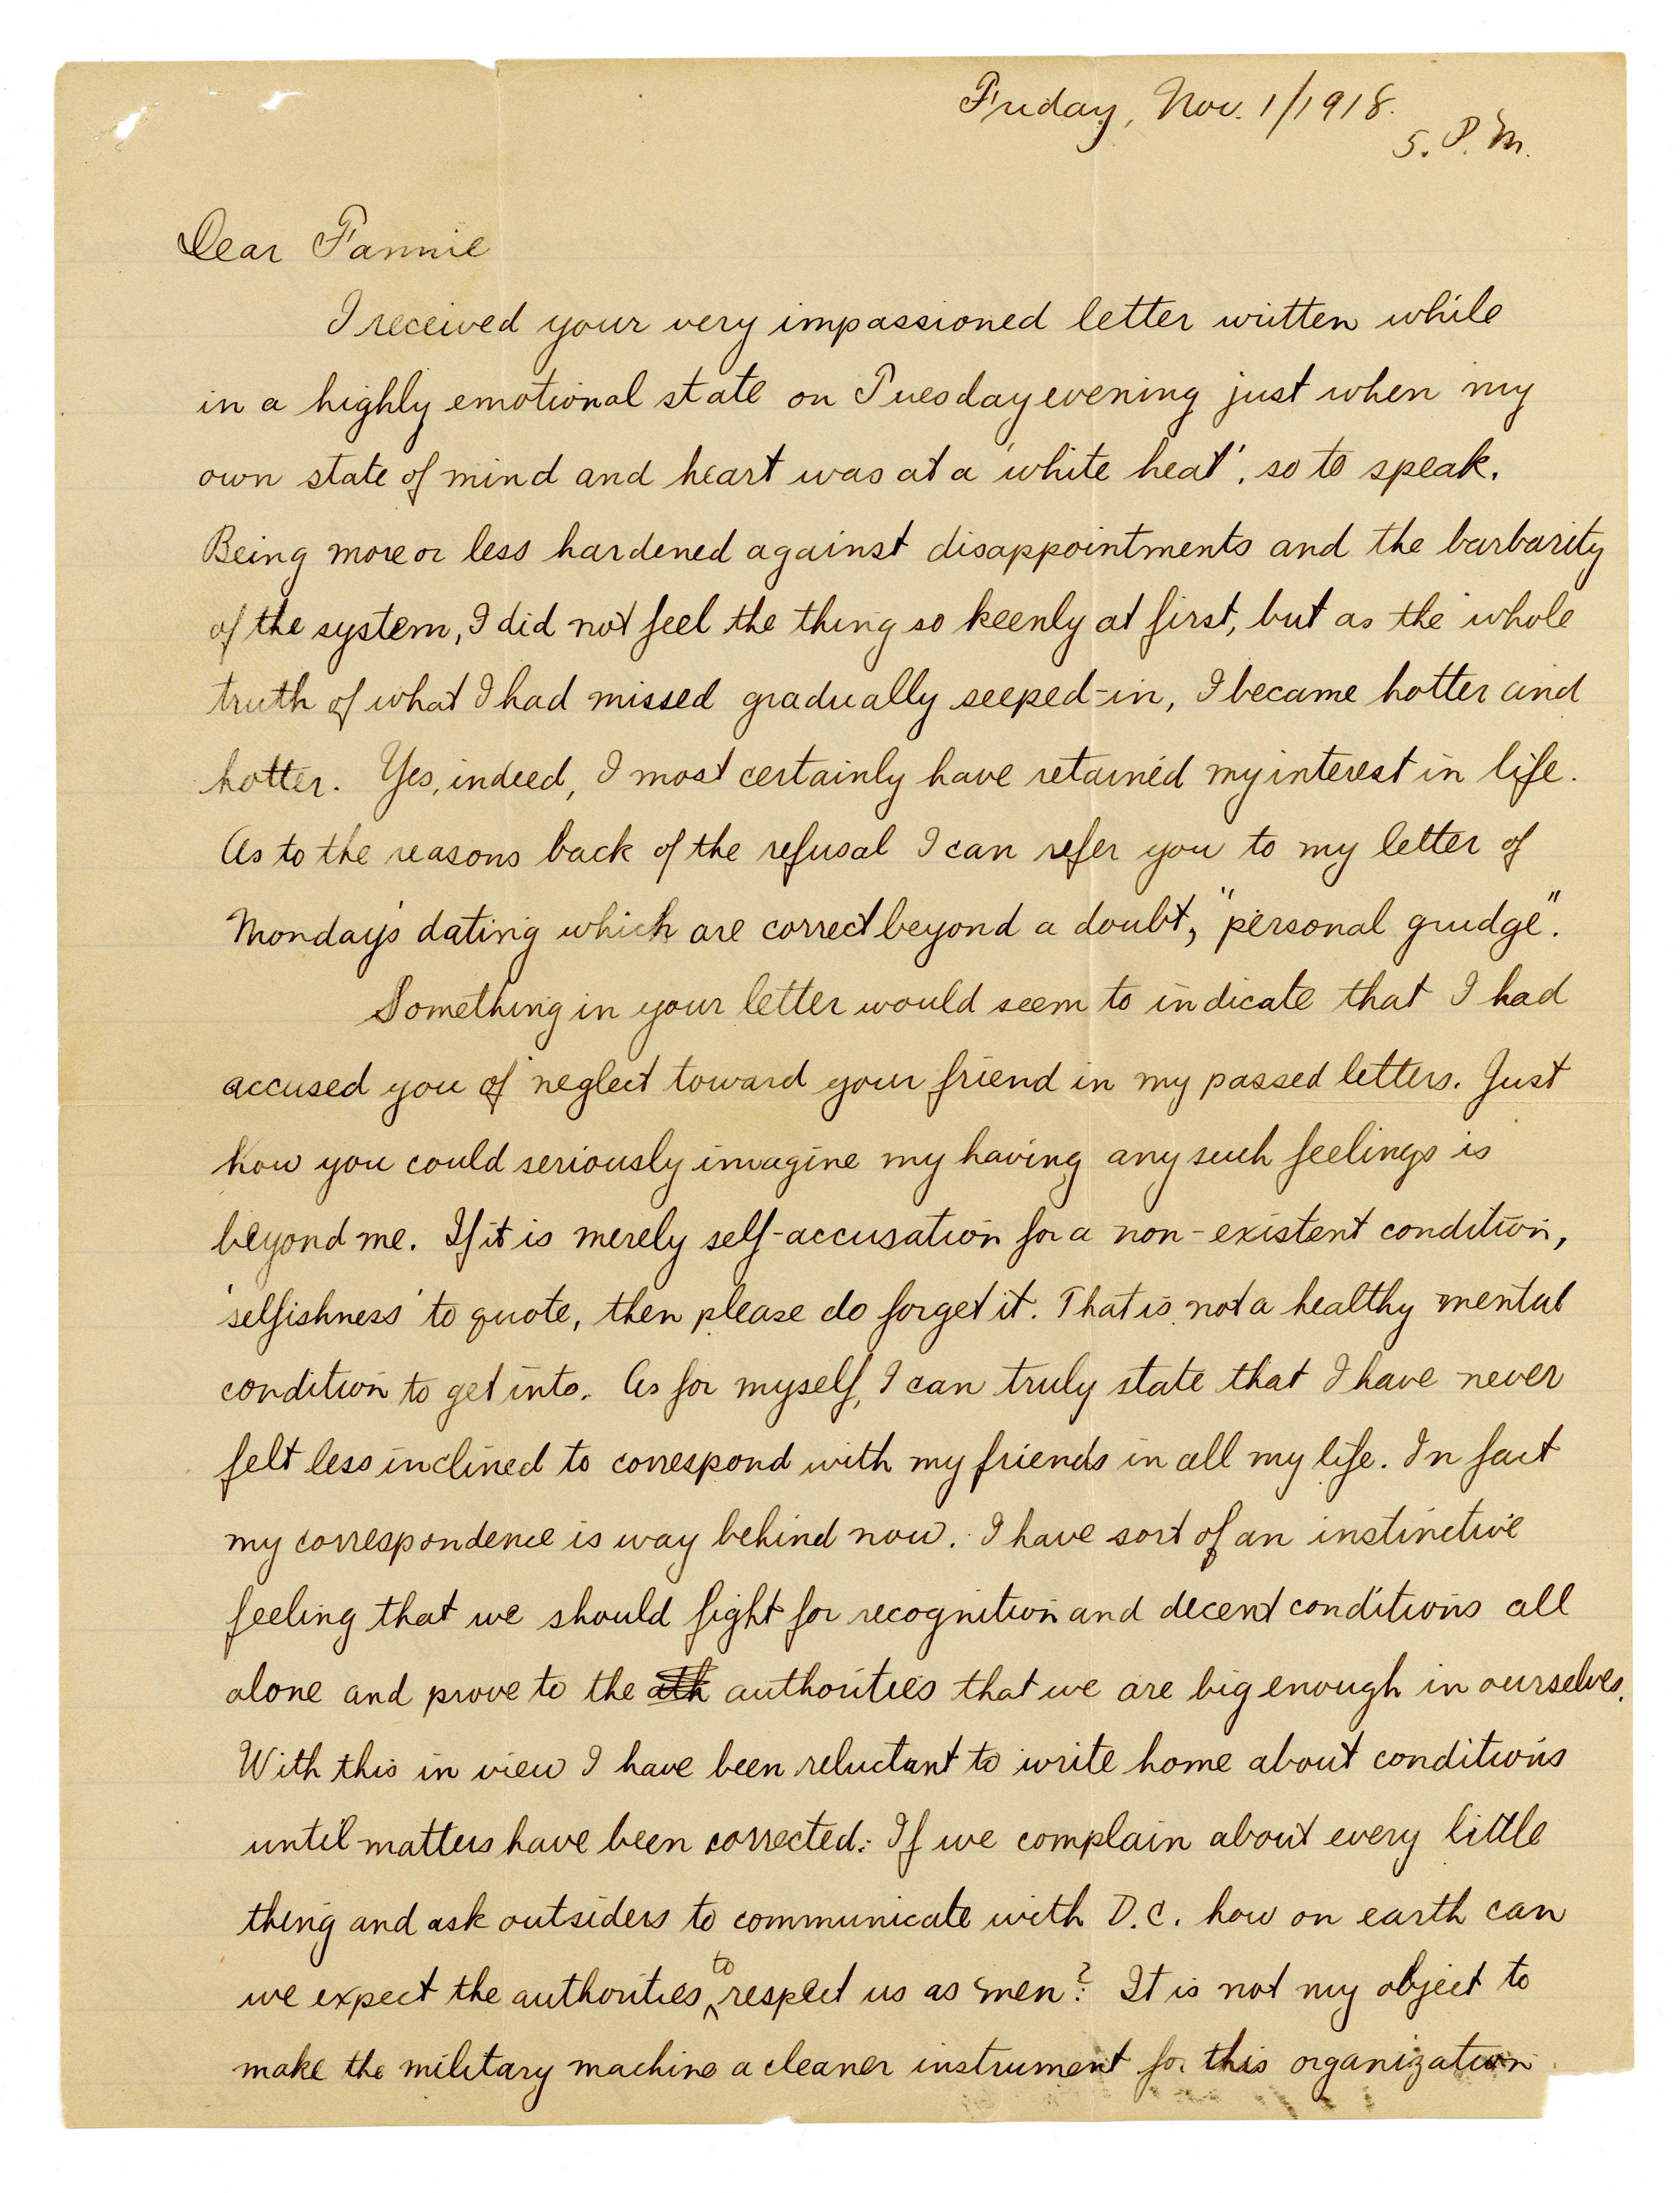 Friday, Nov. 1/1918.
5. P. M.
Dear Fannie
I received your very impassioned letter written while
in a highly emotional state on Tuesday evening just when my
own state of mind and heart was at a 'white heat', so to speak.
Being more or less hardened against disappointments and the barbarity
of the system, I did not feel the thing so keenly at first, but as the whole
truth of what I had missed gradually seeped-in, I became hotter and
hotter. Yes, indeed, I most certainly have retained my interest in life.
As to the reasons back of the refusal I can refer you to my letter of
Monday's dating which are correct beyond a doubt, "personal grudge".
Something in your letter would seem to indicate that I had
accused you of neglect toward your friend in my passed letters. Just
how you could seriously imagine my having any such feelings is
beyond me. If it is merely self-accusation for a non-existent condition,
'selfishness' to quote, then please do forget it. That is not a healthy mental
condition to get into. As for myself, I can truly state that I have never
felt less inclined to correspond with my friends in all my life. In fact
my correspondence is way behind now. I have sort of an instinctive
feeling that we should fight for recognition and decent conditions all
alone and prove to the ath authorities that we are big enough in ourselves.
With this in view I have been reluctant to write home about conditions
until matters have been corrected. If we complain about every little
thing and ask outsiders to communicate with D.C. how on earth can
we expect the authorities to respect us as men? It is not my object to
make the military machine a cleaner instrument for this organization